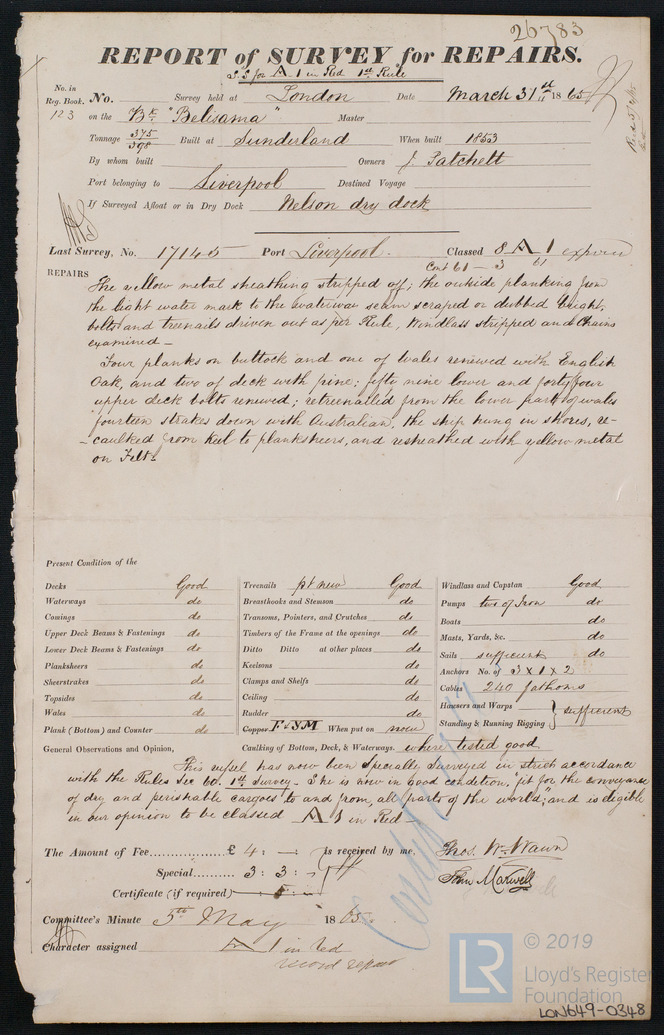 26783
REPORT of SURVEY for REPAIRS.
S.S for A 1 in Red 1st Rule
No. in
Reg. Book.
123
No. Survey held at London Date March 31st 1865
on the Bk "Belisama" Master
Tonnage 375/398 Built at Sunderland When built 1853
By whom built Owners J. Patchett
Port belonging to Liverpool Destined Voyage
If Surveyed Afloat or in Dry Dock Nelson dry dock
Last Survey, No. 17145 Port Liverpool. Classed 8 A 1 expired
Cont 61 - 3 61
REPAIRS
The yellow metal sheathing stripped off; the outside planking from
the light water mark to the waterway seam scraped or dubbed bright,
bolts and treenails driven out as per Rule, Windlass stripped and Chains
examined —
Four planks on buttock and one of wales renewed with English
Oak, and two of deck with pine; fifty nine lower and forty four
upper deck bolts renewed; retreenailed from the lower part of wales
fourteen strakes down with Australian, the ship hung in shores, re-
-caulked from keel to planksheers, and resheathed with yellow metal
on Felt.
Present Condition of the
Decks Good Treenails pt new Good Windlass and Capstan Good
Waterways do Breasthooks and Stemson do Pumps two of Iron do
Comings do Transoms, Pointers, and Crutches do Boats do
Upper Deck Beams & Fastenings do Timbers of the Frame at the openings do Masts, Yards, &c. do
Lower Deck Beams & Fastenings do Ditto Ditto at other places do Sails sufficient do
Planksheers do Keelsons do Anchors No. of 3 x 1 x 2
Sheerstrakes do Clamps and Shelfs do Cables 240 fathoms
Topsides do Ceiling do Hawsers and Warps } sufficient
Wales do Rudder do Standing & Running Rigging
Plank (Bottom) and Counter do Copper F&YM When put on now
General Observations and Opinion, Caulking of Bottom, Deck, & Waterways. where tested good
This vessel has now been Specially Surveyed in strict accordance
with the Rules Sec 60. 1st Survey. She is now in good condition, "fit for the conveyance
of dry and perishable cargoes to and from, all parts of the world," and is eligible
in our opinion to be classed A 1 in Red —
The Amount of Fee £ 4 : — : is received by me, Thos. Wm Wawn
Special 3 : 3 : - John Maxwell
Certificate (if required) 5 : -
Committee's Minute 5th May 1865
Character assigned A 1 in red
© 2019
LR
Lloyd's Register
Foundation
LON649-0348